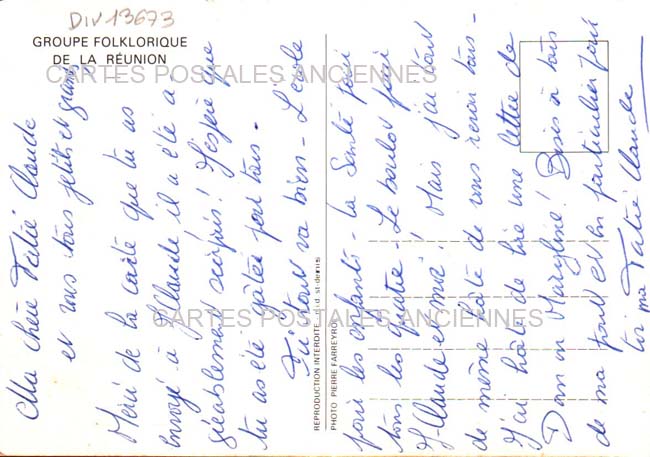 DIV13673
GROUPE FOLKLORIQUE
DE LA RÉUNION
CARTES POSTALES ANCIENNES
CARTES POSTALES ANCIENNES
REPRODUCTION INTERDITE
PHOTO PIERRE FARREYROL
Ma chère Tatié Claude
et vous tous petits et grands
Merci de la carte que tu as
envoyé à J. Claude il a été a
gréablement surpris! J'espère que
tu as été gâtée pour tous -
Ici tout va bien - L'école
pour les enfants - la Santé pour
tous les quatre - Le boulot pour
J-Claude et moi! Mais j'ai tout
de même hâte de vous revoir tous -
J'ai hâte de lire une lettre de
Dom ou Maryline! Bises à tous
de ma part et en particulier pour
toi ma Tatié Claude